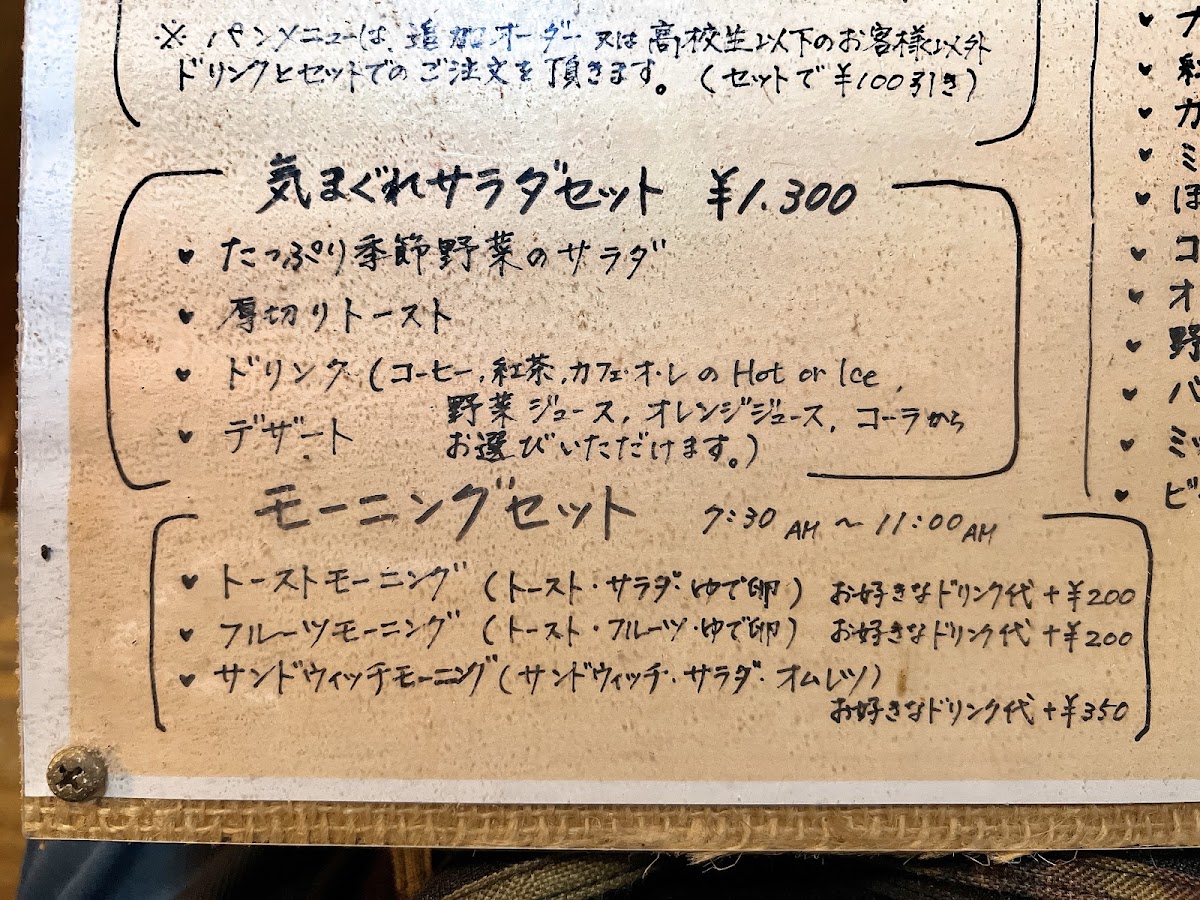 ※ パンメニューは、追加オーダー 又は 高校生以下のお客様以外
ドリンクとセットでのご注文を頂きます。 (セットで ¥100引き)
気まぐれサラダセット ¥1.300
♥ たっぷり季節野菜のサラダ
♥ 厚切りトースト
♥ ドリンク (コーヒー, 紅茶, カフェ・オ・レの Hot or Ice,
野菜ジュース, オレンジジュース, コーラから
お選びいただけます。)
♥ デザート
モーニングセット 7:30 AM ～ 11:00 AM
♥ トーストモーニング (トースト・サラダ・ゆで卵) お好きなドリンク代 +¥200
♥ フルーツモーニング (トースト・フルーツ・ゆで卵) お好きなドリンク代 +¥200
♥ サンドウィッチモーニング (サンドウィッチ・サラダ・オムレツ)
お好きなドリンク代 +¥350